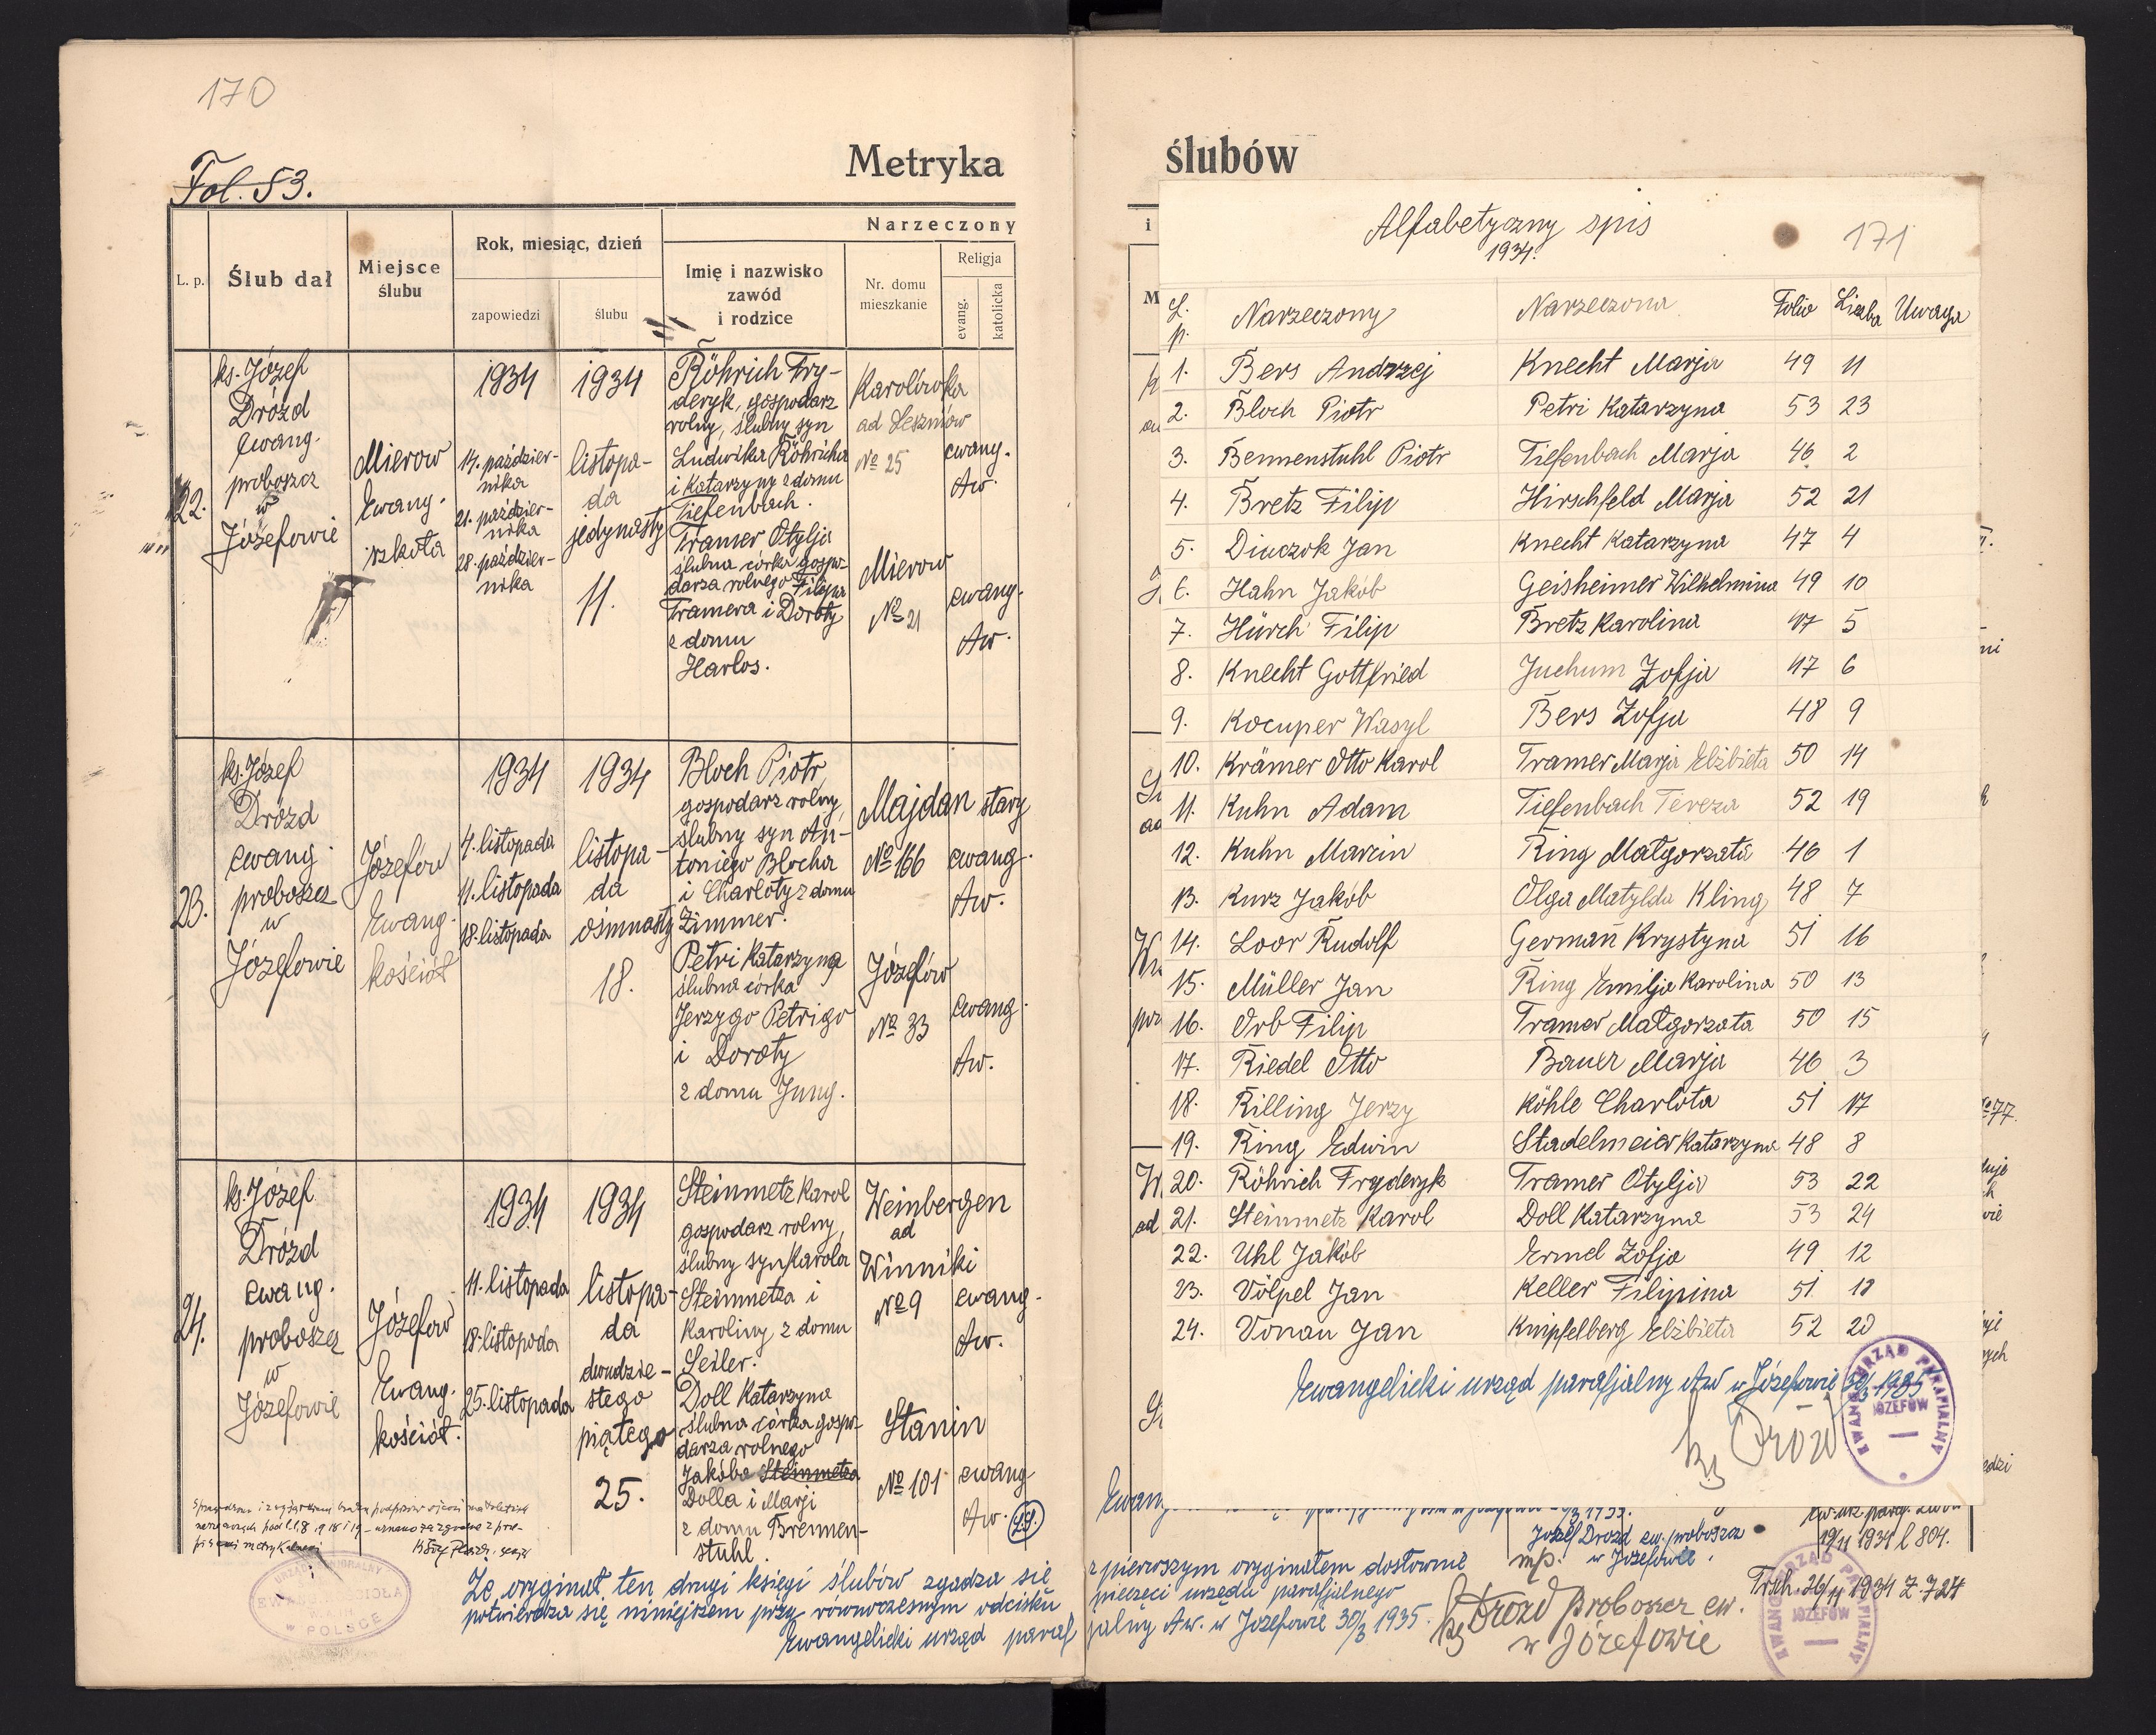 170
Fol. 53.
Metryka
L. p.
Ślub dał
Miejsce
ślubu
Rok, miesiąc, dzień
zapowiedzi
ślubu
Narzeczony
Imię i nazwisko
zawód
i rodzice
Nr. domu
mieszkanie
Religja
evang.
katolicka
22.
ks. Józef
Drózd
ewang.
proboszcz
w
Józefowie
Mierow
Ewang.
szkoła
1934
14. paździer-
nika
21. paździer-
nika
28. paździer-
nika
1934
listopa-
da
jedynasty
11.
Röhrich Fry-
deryk, gospodarz
rolny, ślubny syn
Ludwika Röhricha
i Katarzyny z domu
Tiefenbach.
Tramer Otylja
ślubna córka gospo-
darza rolnego Filipa
Tramera i Doroty
z domu
Harlos.
Karolówka
ad Leszniów
No 25
Mierow
No 21
ewang.
Aw.
ewang.
Aw.
23.
ks. Józef
Drózd
ewang.
proboszcz
w
Józefowie
Józefów
Ewang.
kościół
1934
4. listopada
11. listopada
18. listopada
1934
listopa-
da
ośmnasty
18.
Bloch Piotr,
gospodarz rolny,
ślubny syn An-
toniego Blocha
i Charloty z domu
Zimmer.
Petri Katarzyna
ślubna córka
Jerzygo Petrigo
i Doroty
z domu Jung.
Majdan stary
No 166
Józefów
No 33
ewang.
Aw.
ewang.
Aw.
24.
ks. Józef
Drózd
ewang.
proboszcz
w
Józefowie
Józefów
Ewang.
kościół.
1934
11. listopada
18. listopada
25. listopada
1934
listopa-
da
dwudzie-
stego
piątego
25.
Steinmetz Karol
gospodarz rolny,
ślubny syn Karola
Steinmetza i
Karoliny z domu
Seiler.
Doll Katarzyna
ślubna córka gospo-
darza rolnego
Jakóba Steinmetza
Dolla i Marji
z domu Brennen-
stuhl
Weinbergen
ad
Winniki
No 9
Stanin
No 101
ewang.
Aw.
ewang
Aw.
Że oryginał ten drugi księgi ślubów zgadza się
potwierdza się niniejszem przy równoczesnym odcisku
Ewangelicki urząd paraf
ślubów
Alfabetyczny spis
1934.
171
L. p. Narzeczony Narzeczona Folio Liczba Uwaga
1. Bers Andrzej Knecht Marja 49 11
2. Bloch Piotr Petri Katarzyna 53 23
3. Bennenstuhl Piotr Tiefenbach Marja 46 2
4. Bretz Filip Hirschfeld Marja 52 21
5. Diuczok Jan Knecht Katarzyna 47 4
6. Hahn Jakób Geisheimer Wilhelmina 49 10
7. Hürch Filip Bretz Karolina 47 5
8. Knecht Gottfried Juchum Zofja 47 6
9. Kocuper Wasyl Bers Zofja 48 9
10. Krämer Otto Karol Tramer Marja Elżbieta 50 14
11. Kuhn Adam Tiefenbach Tereza 52 19
12. Kuhn Marcin Ring Małgorzata 46 1
13. Kurz Jakób Olga Matylda Kling 48 7
14. Loor Rudolf German Krystyna 51 16
15. Müller Jan Ring Emilja Karolina 50 13
16. Orb Filip Tramer Małgorzata 50 15
17. Riedel Otto Bauer Marja 46 3
18. Rilling Jerzy Köhle Charlota 51 17
19. Ring Edwin Stadelmeier Katarzyna 48 8
20. Röhrich Fryderyk Tramer Otylja 53 22
21. Steinmetz Karol Doll Katarzyna 53 24
22. Uhl Jakób Ermel Zofja 49 12
23. Völpel Jan Keller Filipina 51 18
24. Vonau Jan Knipfelberg Elżbieta 52 20
Ewangelicki urząd parafjalny Aw w Józefowie 30/3 1935
ks Drózd
EWANG. URZĄD PARAFIALNY
JÓZEFÓW
Józef Drozd ew. proboszcz
mp. w Józefowie.
19/11 1934 l 804.
z pierwszym oryginałem dosłownie
pieczęci urzędu parafjalnego
jalny Aw. w Józefowie 30/3 1935.
ks Drozd proboszcz ew.
w Józefowie
26/11 1934 Z 724
EWANG. URZĄD PARAFIALNY
JÓZEFÓW